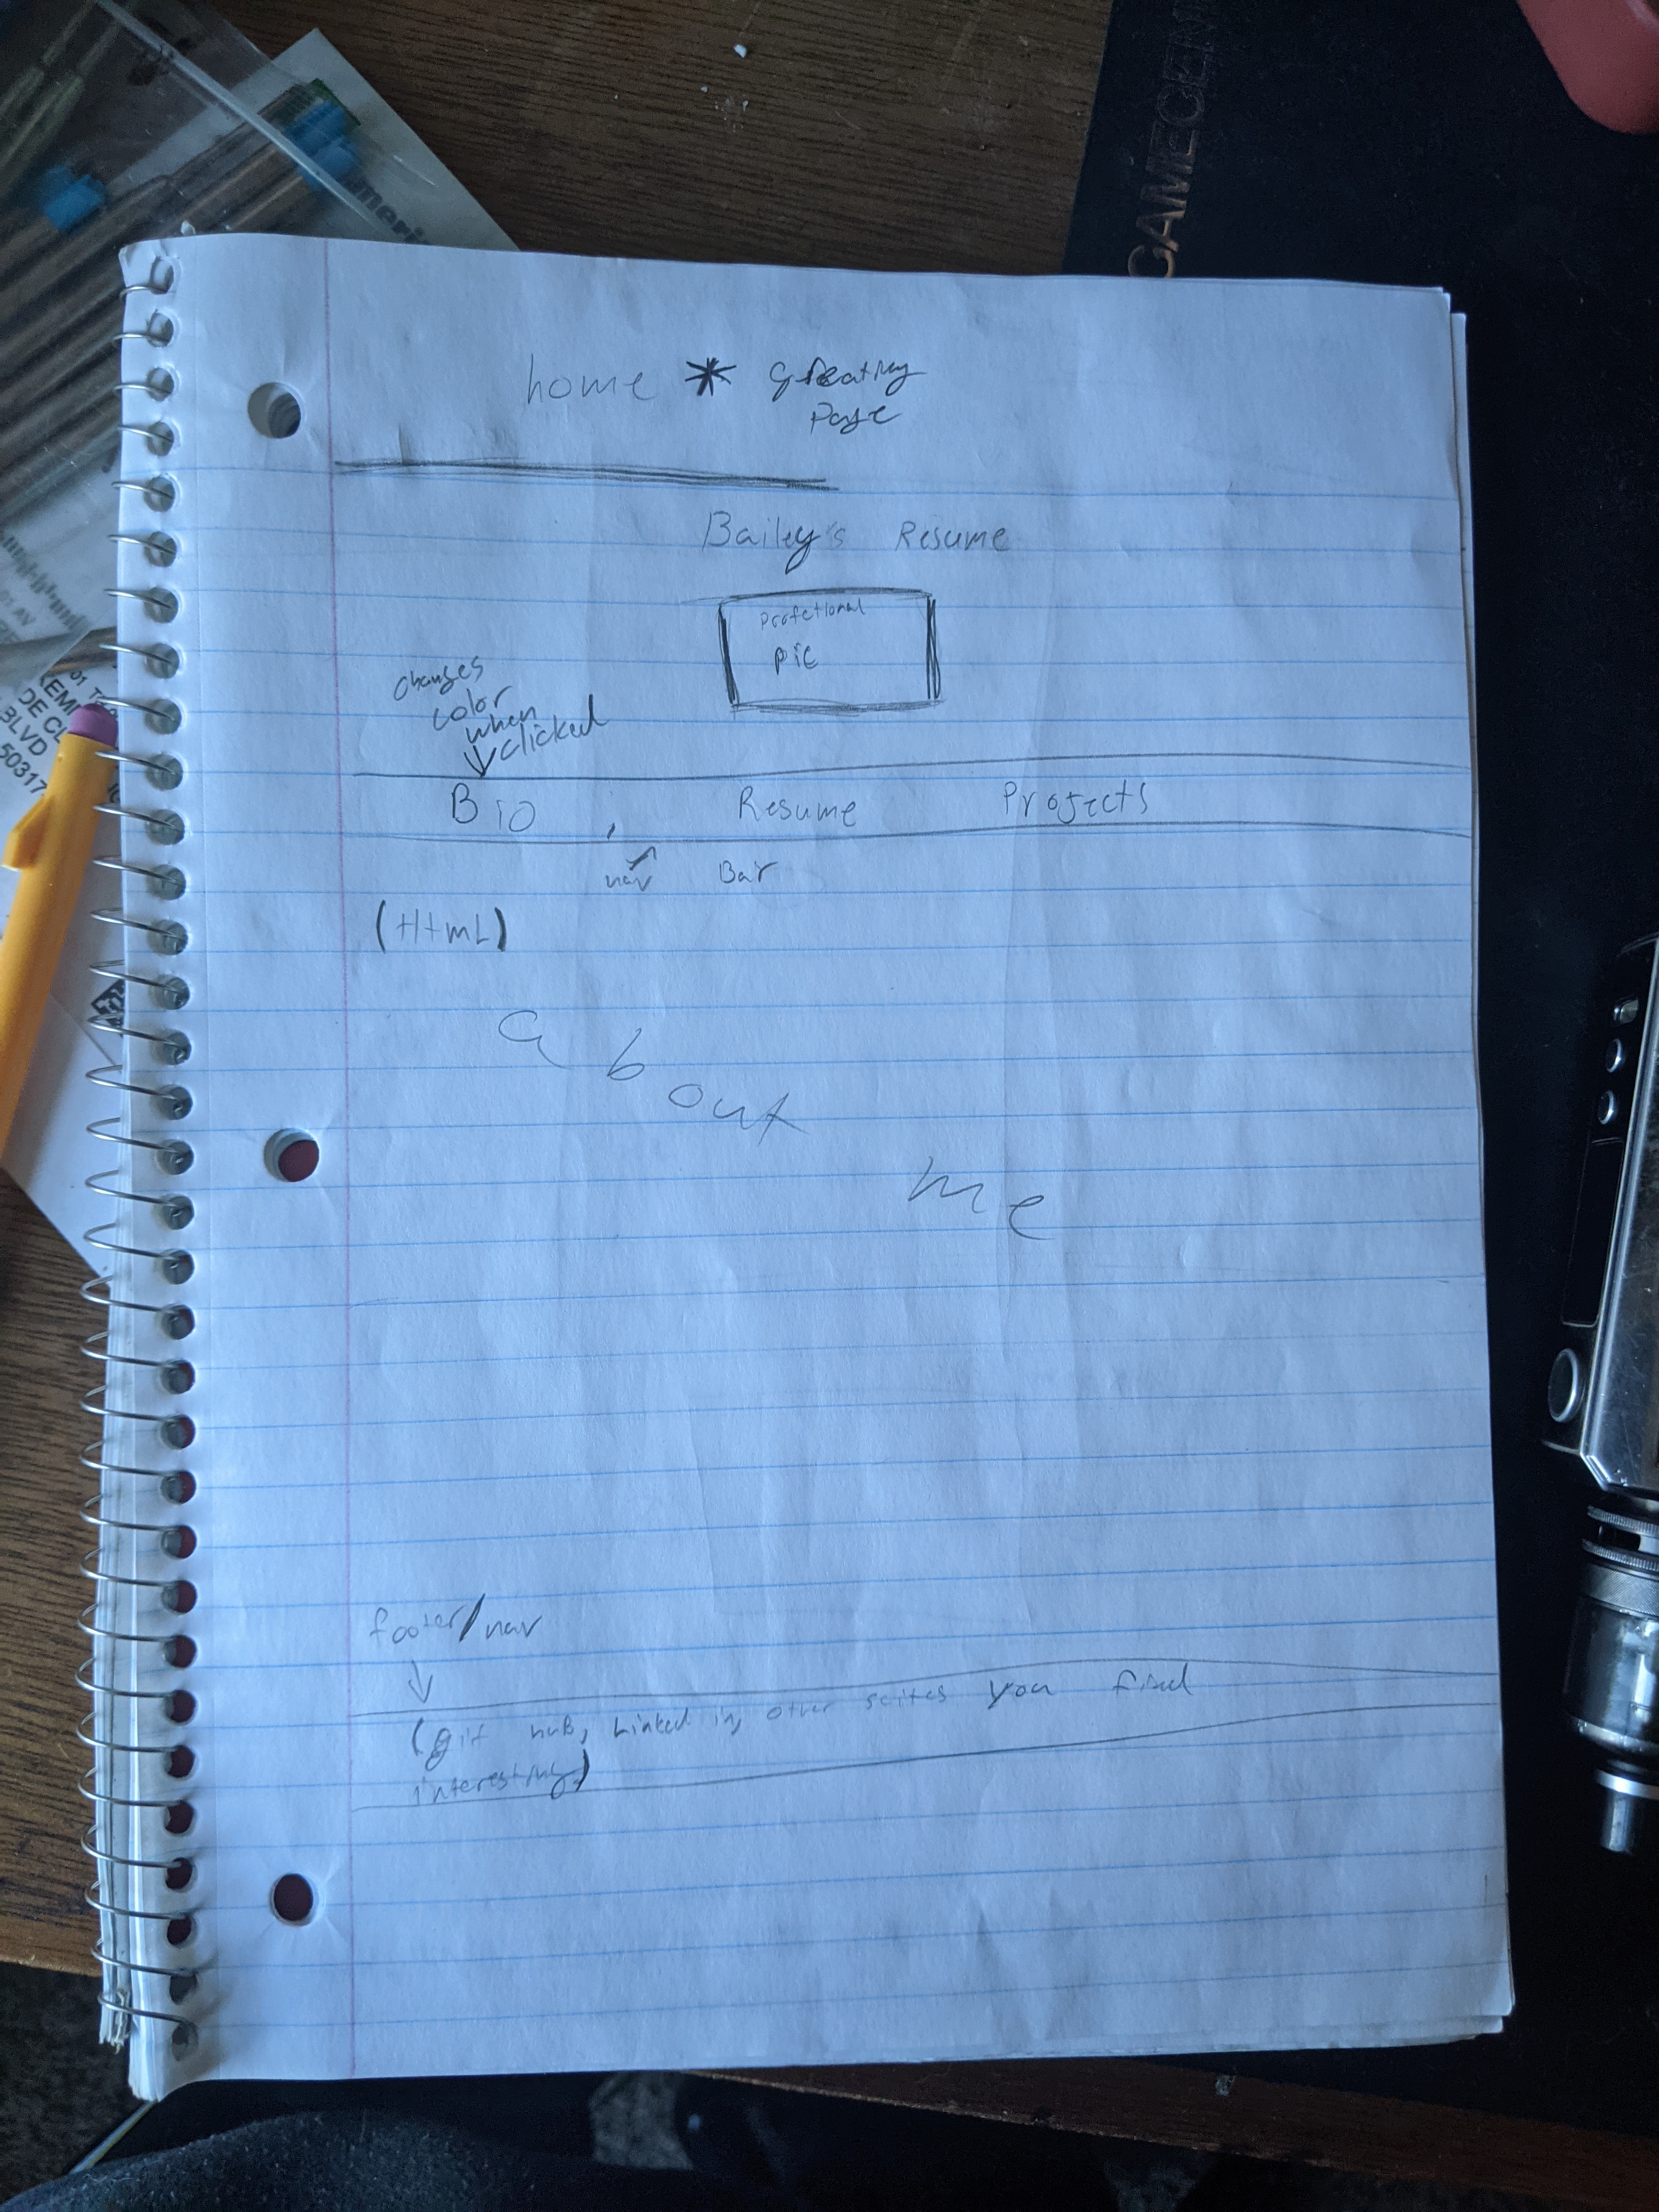 home * Greating
Page
Bailey's Resume
Profetional
pic
changes
color
when
clicked
Bio , Resume Projects
nav Bar
(HtmL)
about
me
footer/nav
(git huB, Linked in, other scites you find
interesting)
GAMECEM
meri
50317
BLVD
DE CL
KEM